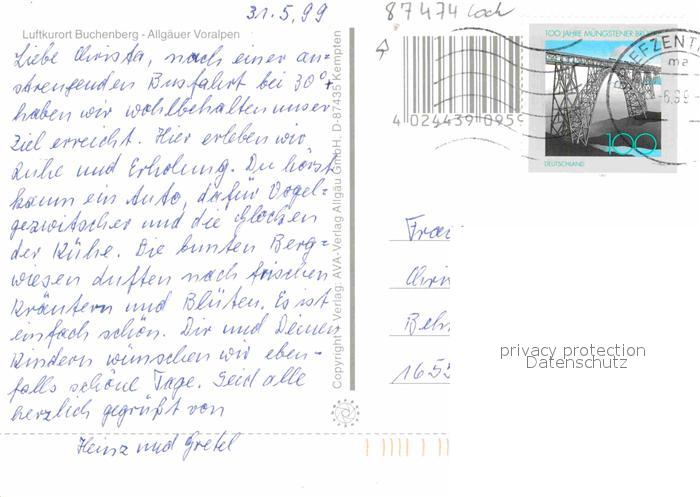 31.5.99
87474 Loch
Luftkurort Buchenberg - Allgäuer Voralpen
Liebe Christa, nach einer an-
strengenden Busfahrt bei 30°+
haben wir wohlbehalten unser
Ziel erreicht. Hier erleben wir
Ruhe und Erholung. Du hörst
kaum ein Auto, dafür Vogel-
gezwitscher und die Glocken
der Kühe. Die bunten Berg-
wiesen duften nach frischen
Kräutern und Blüten. Es ist
einfach schön. Dir und Deinen
Kindern wünschen wir eben-
falls schöne Tage. Seid alle
herzlich gegrüßt von
Heinz und Gretel
Copyright u. Verlag: AVA-Verlag Allgäu GmbH, D-87435 Kempten
4 024439 0959
100 JAHRE MÜNGSTENER BR
100
DEUTSCHLAND
BRIEFZENT
Frau
Chri
Beh
1653
privacy protection
Datenschutz